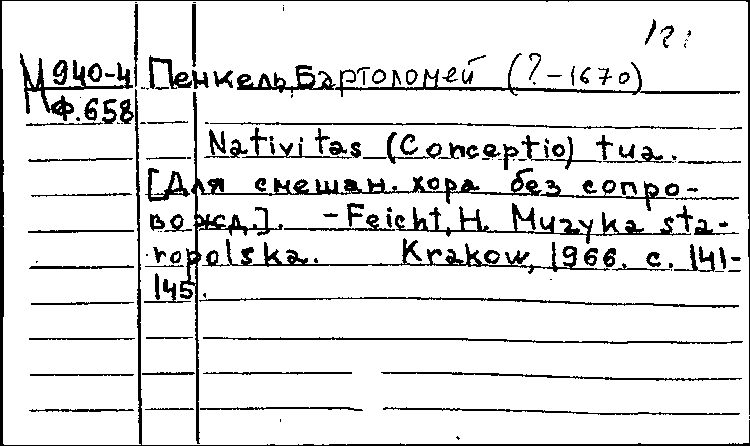 М 940-4 Пенкель, Бартоломей (?-1670)
Ф.658
Nativitas (Conceptio) tua.
[Для смешан. хора без сопро-
вожд.]. - Feicht, H. Muzyka sta-
ropolska. Krakow, 1966. с. 141-
145.